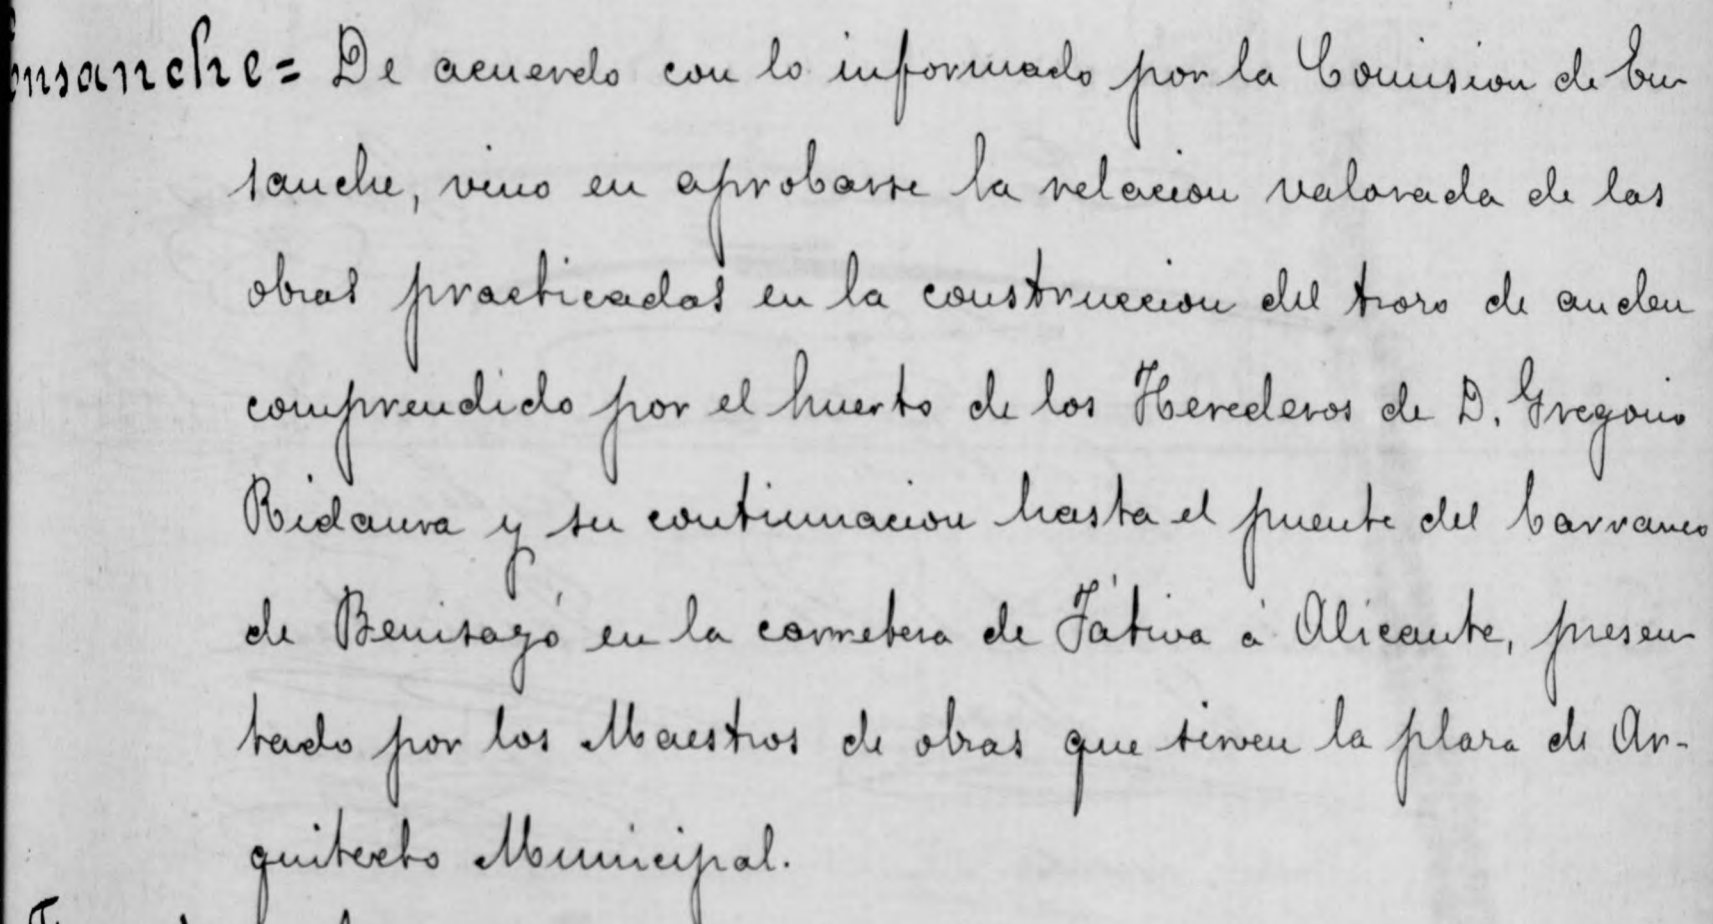 Ensanche = De acuerdo con lo informado por la Comision de En-
sanche, vino en aprobarse la relacion valorada de las
obras practicadas en la construccion del trozo de anden
comprendido por el huerto de los Herederos de D. Gregorio
Ridaura y su continuacion hasta el puente del barranco
de Benisayó en la carretera de Játiva á Alicante, presen-
tado por los Maestros de obras que sirven la plaza de Ar-
quitecto Municipal.